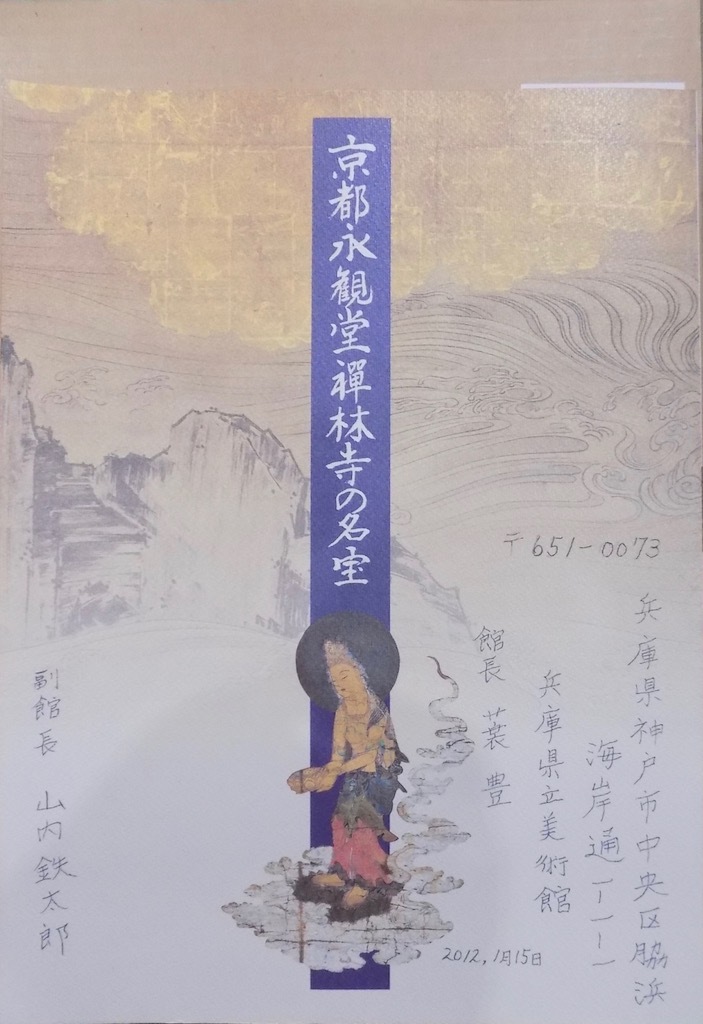 京都永観堂禅林寺の名宝
〒651-0073
兵庫県神戸市中央区脇浜
海岸通一-一-一
兵庫県立美術館
館長 蓑豊
副館長 山内鉄太郎
2012,1月15日